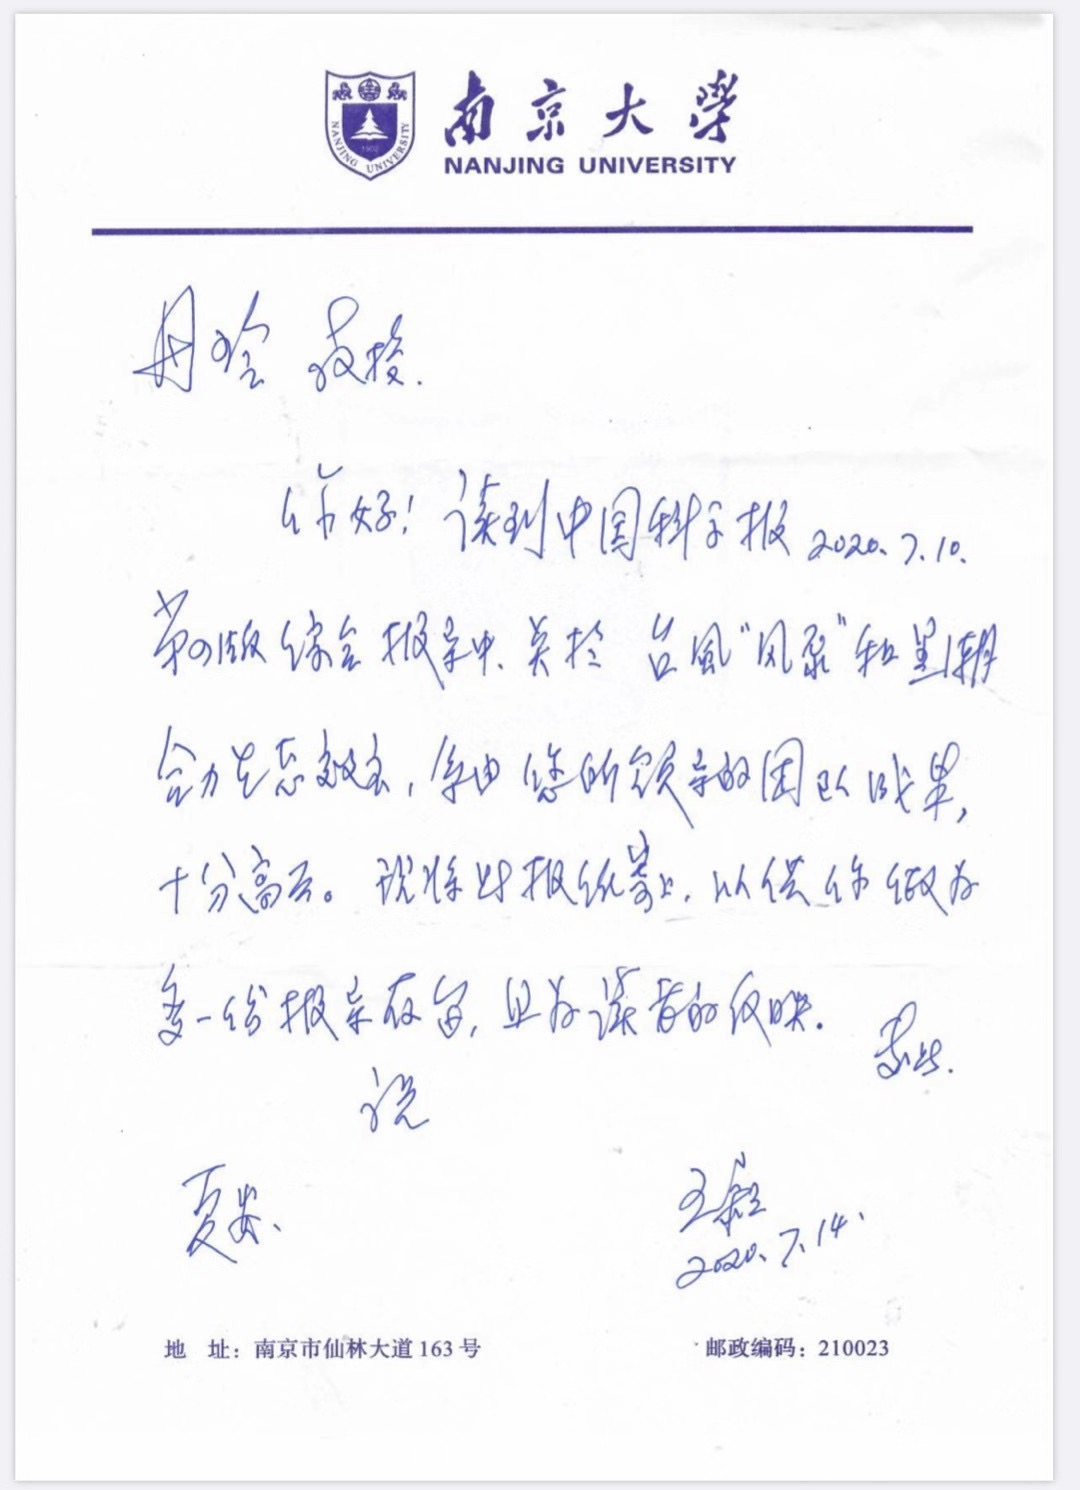 南京大学
NANJING UNIVERSITY
NANJING UNIVERSITY
1902
丹玲 教授.
你好！读到中国科学报 2020.7.10.
第四版综合报导中, 关於 台風“风泵”和
合力生态效应, 你的领导的团队成果,
十分高兴。现将此报纸寄上, 以供你做为
多一份报导存留, 且为读者的反映.
专此.
祝
夏安、
王颖
2020.7.14.
地 址：南京市仙林大道163号
邮政编码：210023